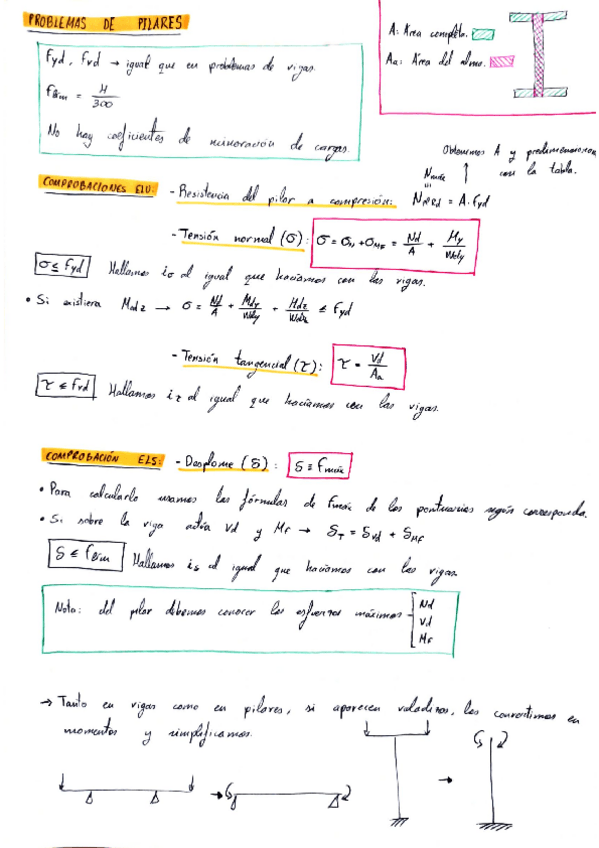 PROBLEMAS DE PILARES
A: Área completa.
Aa: Área del alma.
Fyd, Fvd → igual que en problemas de vigas.
Fám = H/300
No hay coeficientes de minoración de cargas.
Obtenemos A y predimensionamos
con la tabla.
COMPROBACIONES ELU:
- Resistencia del pilar a compresión: NplRd = A·Fyd
- Tensión normal (σ): σ = σN + σMF = Nd/A + My/Wely
σ ≤ Fyd Hallamos iσ al igual que hacíamos con las vigas.
• Si existiera Mdz → σ = Nd/A + Mdy/Wely + Mdz/Welz ≤ Fyd
- Tensión tangencial (τ): τ = Vd/Aa
τ ≤ Fvd Hallamos iτ al igual que hacíamos con las vigas.
COMPROBACIÓN ELS: - Desplome (δ): δ = Fmáx
• Para calcularlo usamos las fórmulas de Fmáx de los prontuarios según corresponda.
• Si sobre la viga actúa Vd y MF → δT = δVd + δMF
Hallamos iδ al igual que hacíamos con las vigas.
Nota: del pilar debemos conocer los esfuerzos máximos
Nd
Vd
MF
→ Tanto en vigas como en pilares, si aparecen voladizos, los convertimos en
momentos y simplificamos.